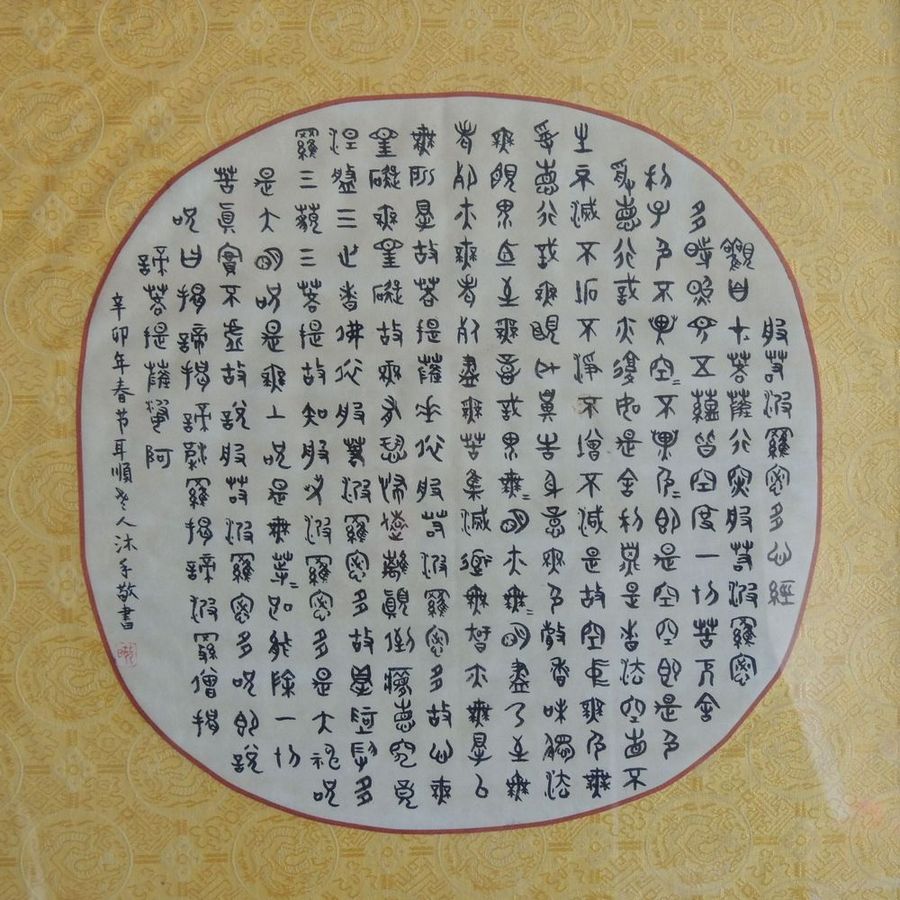 般若波羅密多心經
觀自在菩薩行深般若波羅密
多時照見五蘊皆空度一切苦厄舍
利子色不異空=不異色=即是空空即是色
受想行識亦復如是舍利子是諸法空相不
生不滅不垢不淨不增不減是故空中無色無
受想行識無眼耳鼻舌身意無色聲香味觸法
無眼界乃至無意識界無=明亦無=明盡乃至無
老死亦無老死盡無苦集滅道無智亦無得以
無所得故菩提薩埵依般若波羅密多故心無
罣礙無罣礙故無有恐怖遠離顛倒夢想究竟
涅槃三世諸佛依般若波羅密多故得阿耨多
羅三藐三菩提故知般若波羅密多是大神咒
是大明咒是無上咒是無等=咒能除一切
苦真實不虛故說般若波羅密多咒即說
咒曰揭諦揭諦般羅揭諦波羅僧揭
諦菩提薩婆阿
辛卯年春节耳順老人沐手敬書